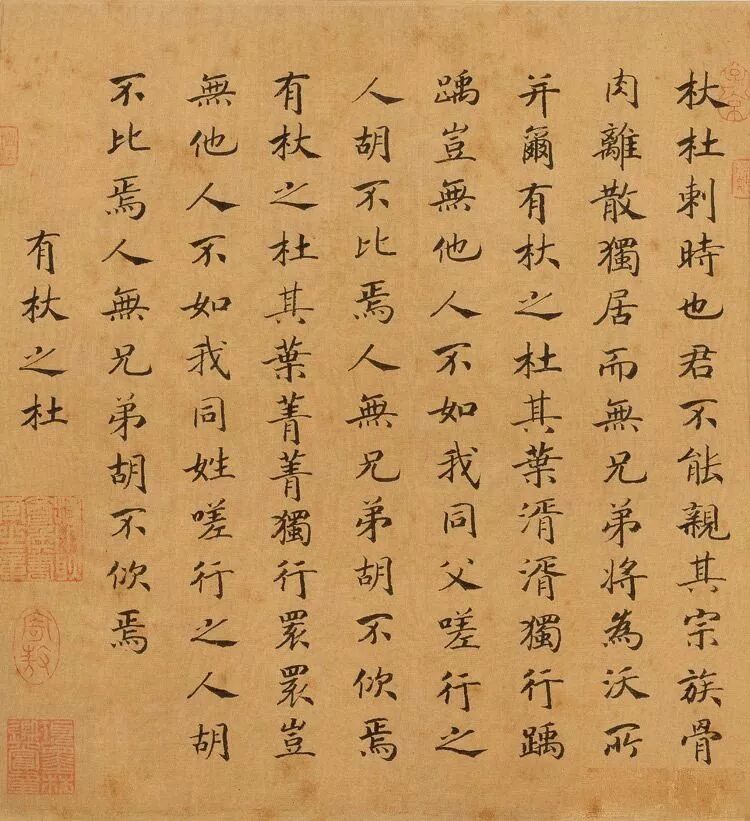 杕杜刺時也君不能親其宗族骨
肉離散獨居而無兄弟將為沃所
并爾有杕之杜其葉湑湑獨行踽
踽豈無他人不如我同父嗟行之
人胡不比焉人無兄弟胡不佽焉
有杕之杜其葉菁菁獨行睘睘豈
無他人不如我同姓嗟行之人胡
不比焉人無兄弟胡不佽焉
有杕之杜